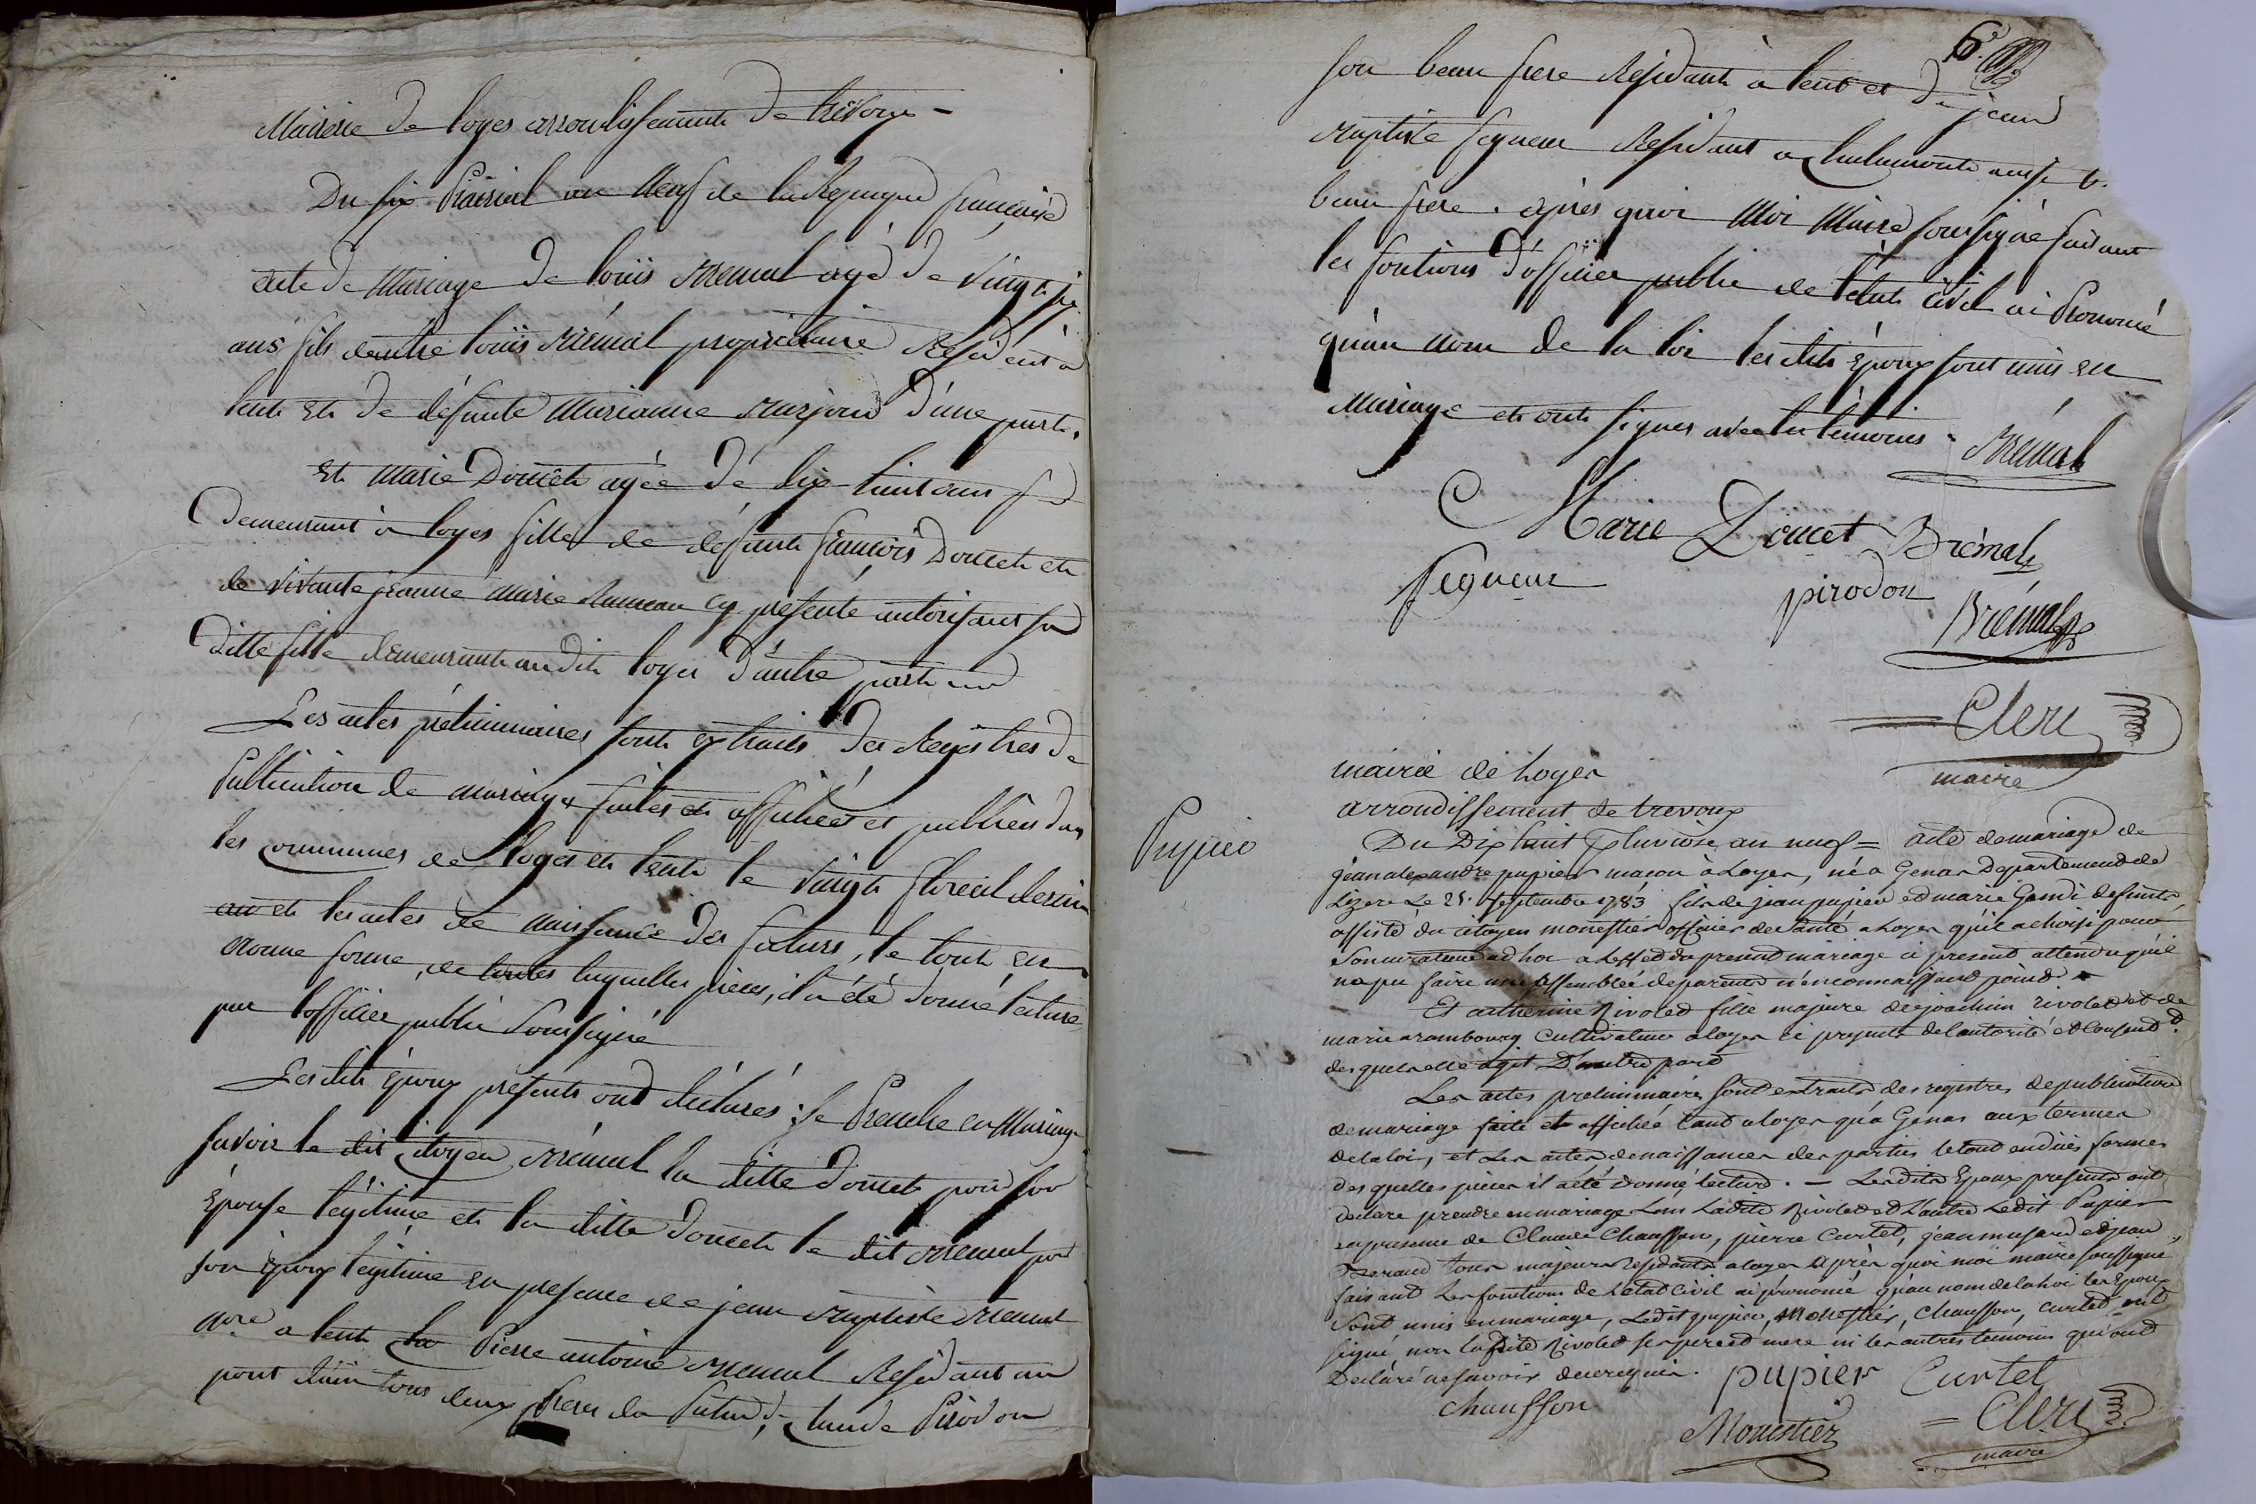 Mairie de loyes arrondissement de trévoux
Du six Prairial an Neuf de la Republique française
acte de Mariage de loüis Brémal agé de vingt six
ans fils dautre loüis Brémal propriétaire Résident à
lent et de défunte Marianne d'une part.
et marie Doucet agée de dix huit ans
demeurant à loyes fille de défunt françois Doucet et
de vivante jeanne marie cy présente autorisant sa
ditte fille demeurante au dit loyes d'autre part
Les actes préliminaires sont extraits des Registres de
Publication de mariage faites et affichées et publiées dans
les communes de loyes et lent le vingt floréal dernier
et les actes de naissance des futurs, le tout en
bonne forme, de toutes lesquelles pièces, il a été donné lecture
par l'officier public soussigné
Les dits époux présents ont déclarés se Prendre en Mariage
savoir le dit citoyen Brémal la ditte doucet pour son
épouse légitime et la ditte doucet le dit Brémal pour
son époux légitime en présence de jean Baptiste Brémal
nore a lent Pierre antoine Bremal Résidant au
pont d'ain tous deux freres du futur, de claude Pirodon
6e
son beau frere Résidant à lent et de jean
Baptiste segneur Résidant a chalamont aussi b.
beau frere. après quoi Moi Maire soussigné faisant
les fontions d'officier public de l'état civil ai Prononcé
qu'au nom de la loi les dits époux sont unis en
Mariage et ont signés avec les témoins.
Brémal
Marie Doucet Brémal
segneur pirodon
Brémal
Clerc
maire
mairie de Loyes
arrondissement de trevoux
Pupier
Du Dix huit Pluviose an neuf = acte de mariage de
jean alexandre pupier macon à Loyes, né a Genas Departement de
Lizere Le 21. Septembre 1783 fils de jean pupier et marie defunts,
assisté du citoyen monestier officier de santé a Loyes qu'il a choisi pour
son curateur ad hoc a L'effet du present mariage ci present attendu qu'il
na pu faire une assemblée de parents n'en connaissant point
Et catherine Rivolet fille majeure de joachim rivolet et de
marie arambourg cultivateur a loyes ci presents de l'autorité et consent.t
desquels elle agit D'autre part
Les actes preliminaires sont extraits des registres de publication
de mariage faite et affichée tant a loyes qu'a Genas aux termes
de la loi, et Les actes de naissance des parties le tout en dües formes
des quelles pieces il a été donné lecture. — Les dits Epoux presents ont
declaré prendre en mariage Lun Ladite Rivolet et Lautre Ledit Pupier
en presence de Claude Chausson, pierre Curtet, jean et jean
tous majeurs résidants a loyes après quoi moi maire soussigné
faisant Les fonctions de L'etat Civil ai prononcé qu'au nom de la Loi les Epoux
sont unis en mariage, Ledit pupier, Monestier, Chausson, curtet ont
signé non ladite Rivolet ses pere et mere ni les autres temoins qui ont
Declaré ne savoir de ce requis.
pupier Curtet
chausson
Monestier
Clerc
maire